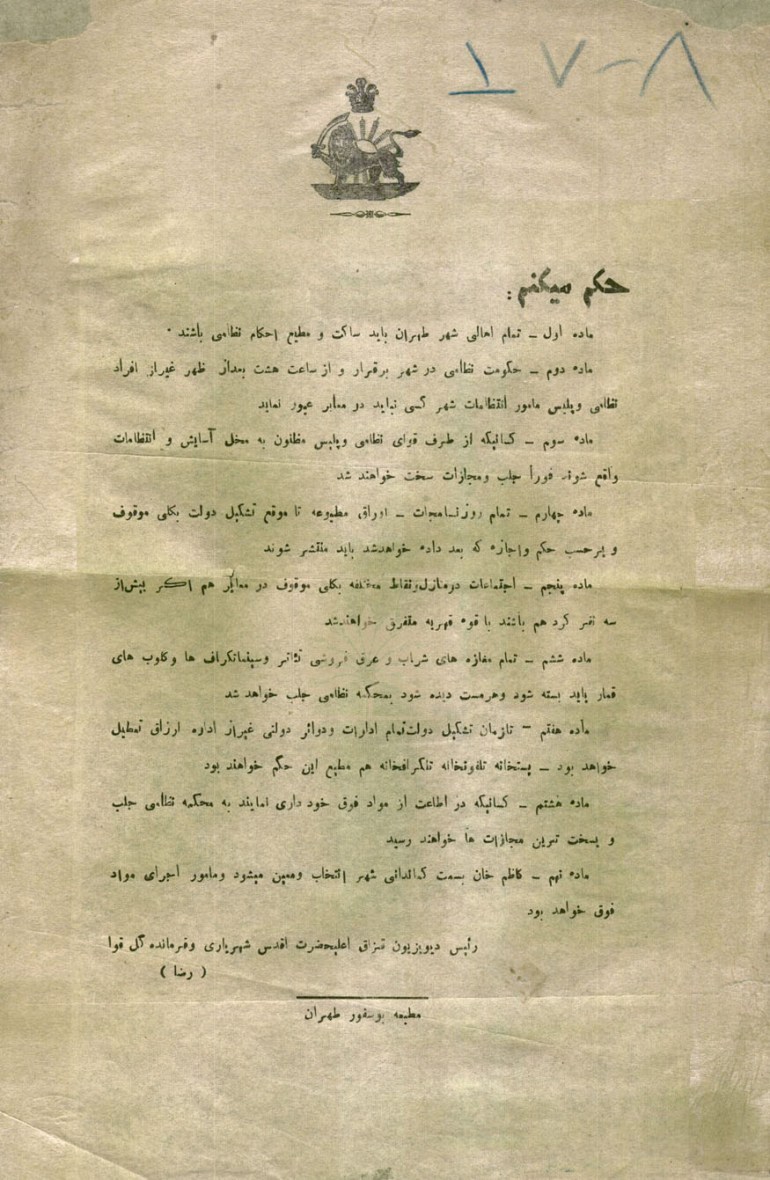 ۸-۷ ۱
حکم میکنم :
ماده اول – تمام اهالی شهر طهران باید ساکت و مطیع احکام نظامی باشند ۰
ماده دوم – حکومت نظامی در شهر برقرار و از ساعت هشت بعداز ظهر غیراز افراد
نظامی وپلیس مامور انتظامات شهر کسی نباید در معابر عبور نماید
ماده سوم – کسانیکه از طرف قوای نظامی وپلیس مظنون به مخل آسایش و انتظامات
واقع شوند فوراً جلب ومجازات سخت خواهند شد
ماده چهارم – تمام روزنامجات – اوراق مطبوعه تا موقع تشکیل دولت بکلی موقوف
و برحسب حکم واجازه که بعد داده خواهدشد باید منتشر شوند
ماده پنجم – اجتماعات درمنازل ونقاط مختلفه بکلی موقوف در معابر هم اگر بیش از
سه نفر گرد هم باشند با قوه قهریه متفرق خواهندشد
ماده ششم – تمام مغازه های شراب و عرق فروشی تئاتر وسینماتگراف ها وکلوب های
قمار باید بسته شود وهرمست دیده شود بمحکمه نظامی جلب خواهد شد
ماده هفتم – تازمان تشکیل دولت تمام ادارات ودوائر دولتی غیراز اداره ارزاق تعطیل
خواهد بود – پستخانه تلفونخانه تلگرافخانه هم مطیع این حکم خواهند بود
ماده هشتم – کسانیکه در اطاعت از مواد فوق خود داری نمایند به محکمه نظامی جلب
و بسخت ترین مجازات ها خواهند رسید
ماده نهم – کاظم خان بسمت کماندانی شهر انتخاب ومعین میشود ومامور اجرای مواد
فوق خواهد بود
رئیس دیویزیون قزاق اعلیحضرت اقدس شهریاری وفرمانده کل قوا
( رضا )
مطبعه بوسفور طهران